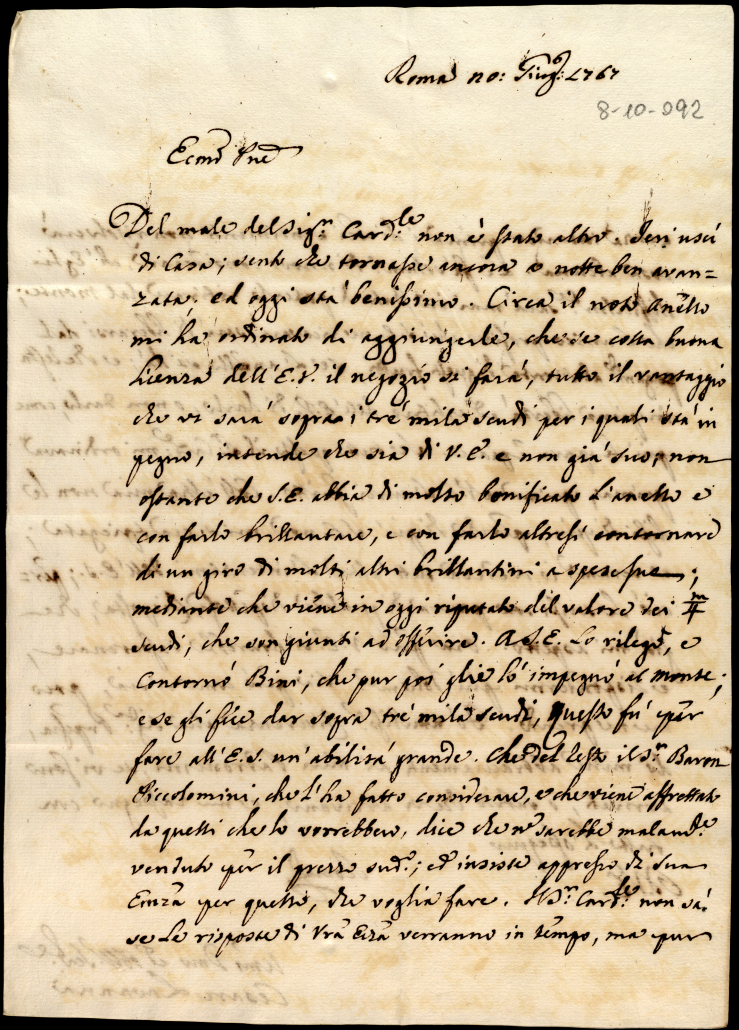 Roma 20: Giug:º 1767
8-10-092
Ecmõ Pnẽ
Del male del Sig:r Card:le non è stato altro. Ieri uscì
di Casa; sento che tornasse ancora a notte ben avan=
zata; ed oggi stà benissimo. Circa il noto Anello
mi hà ordinato di aggiungerle, che se colla buona
licenza dell'E.V. il negozio si farà, tutto il vantaggio
che vi sarà sopra i trè mila scudi per i quali stà in
pegno, intende che sia di V.E. e non già suo, non
ostante che S.E. abbia di molto bonificato l'anello e
con farlo brillantare, e con farlo altresì contornare
di un giro di molti altri brillantini a spese sue;
mediante che viene in oggi riputato del valore dei
scudi, che son giunti ad offerire. A S.E. lo rilegò, e
contornò Bini, che pur poi glie lò impegnò al monte;
e se gli fece dar sopra trè mila scudi, questo fù per
fare all'E.S. un'abilità grande. Che del resto il S.r Baron
Piccolomini, che l'hà fatto considerare, e che viene affrettato
da quelli che lo vorrebbero, dice che sarebbe
venduto per il prezzo sud:º; ed insiste appresso di sua
Emza per quello, che voglia fare. Il S.r Card:le non sà
se le risposte di Vrã Eczã verranno in tempo, ma pur